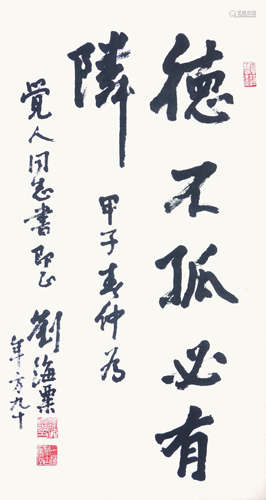 德不孤必有
隣
甲子春仲为
觉人同志书即正
劉海粟
年方九十